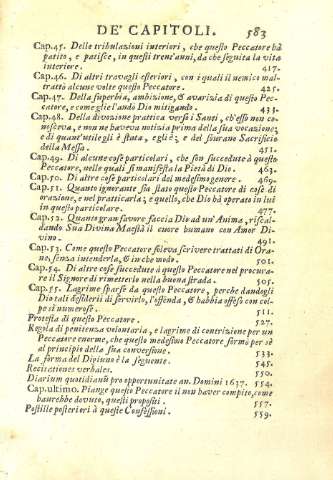 DE' CAPITOLI. 583
Cap.45. Delle tribulazioni interiori, che questo Peccatore hà
patito, e patisce, in questi trent'anni, da che seguita la vita
interiore. 417.
Cap.46. Di altri travagli esteriori, con i quali il nemico mal-
trattò alcune volte questo Peccatore. 425.
Cap.47. Della superbia, ambizione, & avarizia di questo Pec-
catore, e come gl'andò Dio mitigando. 433.
Cap.48. Della divozione pratica verso i Santi, ch'esso non co-
nosceva, e non ne haveva notizia prima della sua vocazione;
e di quant'utile gli è stata, egli è; e del sourano Sacrificio
della Messa. 451.
Cap.49. Di alcune cose particolari, che son succedute à questo
Peccatore, nelle quali si manifesta la Pietà di Dio. 463.
Cap.50. Di altre cose particolari del medesimo genere. 469.
Cap.51. Quanto ignorante sia stato questo Peccatore di cose di
orazione, e nel pratticarla; e quello, che Dio hà operato in lui
in orazione. 477.
Cap.52. Quanto gran favore faccia Dio ad un'Anima, riscal-
dando Sua Divina Maestà il cuore humano con Amor Di-
vino. 491.
Cap.53. Come questo Peccatore soleva scrivere trattati di Ora-
ne, senza intenderla, & in che modo. 501.
Cap.54. Di altre cose succedute à questo Peccatore nel procura-
re il Signore di rimetterlo nella buona strada. 505.
Cap.55. Lagrime sparse da questo Peccatore, perche dandogli
Dio tali desiderii di servirlo, l'offenda, & habbia offeso con col-
pe sì numerose. 511.
Protesta di questo Peccatore. 527.
Regola di penitenza volontaria, e lagrime di contrizione per un
Peccatore enorme, che questo medesimo Peccatore formò per sè
al principio della sua conversione. 533.
La forma del Digiuno è la seguente. 545.
Recitationes verbales. 550.
Diarium quotidianũ pro opportunitate an. Domini 1637. 554.
Cap.ultimo. Piange questo Peccatore il non haver compito, come
haurebbe dovuto, questi propositi. 557.
Postille posteriori à queste Confessioni. 559.